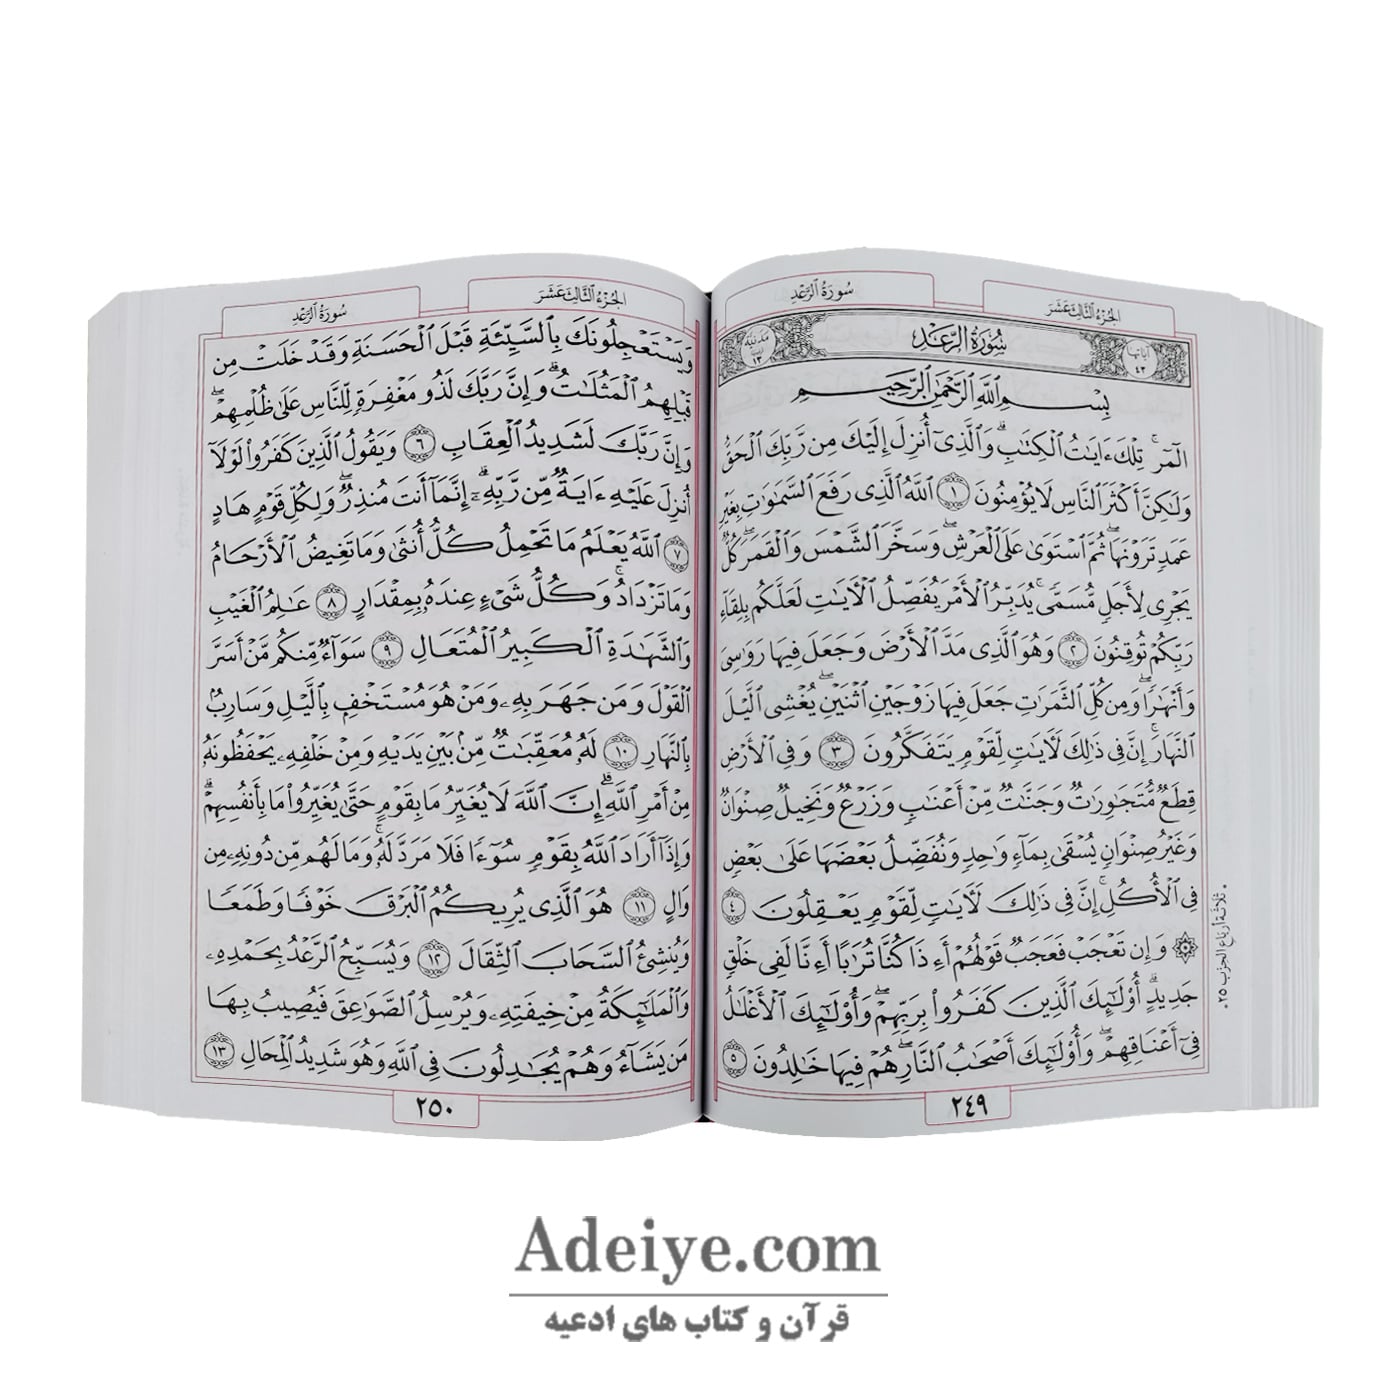 الجُزْءُ الثَّالِثَ عَشَرَ
سُورَةُ الرَّعْدِ
آياتها ٤٣
سُورَةُ الرَّعْدِ
مدنية ١٣
بِسْمِ ٱللَّهِ ٱلرَّحْمَٰنِ ٱلرَّحِيمِ
الٓمٓرۚ تِلْكَ ءَايَٰتُ ٱلْكِتَٰبِۗ وَٱلَّذِىٓ أُنزِلَ إِلَيْكَ مِن رَّبِّكَ ٱلْحَقُّ
وَلَٰكِنَّ أَكْثَرَ ٱلنَّاسِ لَا يُؤْمِنُونَ ١ ٱللَّهُ ٱلَّذِى رَفَعَ ٱلسَّمَٰوَٰتِ بِغَيْرِ
عَمَدٍ تَرَوْنَهَاۖ ثُمَّ ٱسْتَوَىٰ عَلَى ٱلْعَرْشِۖ وَسَخَّرَ ٱلشَّمْسَ وَٱلْقَمَرَۖ كُلٌّ
يَجْرِى لِأَجَلٍ مُّسَمًّىۚ يُدَبِّرُ ٱلْأَمْرَ يُفَصِّلُ ٱلْءَايَٰتِ لَعَلَّكُم بِلِقَآءِ
رَبِّكُمْ تُوقِنُونَ ٢ وَهُوَ ٱلَّذِى مَدَّ ٱلْأَرْضَ وَجَعَلَ فِيهَا رَوَٰسِىَ
وَأَنْهَٰرًاۖ وَمِن كُلِّ ٱلثَّمَرَٰتِ جَعَلَ فِيهَا زَوْجَيْنِ ٱثْنَيْنِۖ يُغْشِى ٱلَّيْلَ
ٱلنَّهَارَۚ إِنَّ فِى ذَٰلِكَ لَءَايَٰتٍ لِّقَوْمٍ يَتَفَكَّرُونَ ٣ وَفِى ٱلْأَرْضِ
قِطَعٌ مُّتَجَٰوِرَٰتٌ وَجَنَّٰتٌ مِّنْ أَعْنَٰبٍ وَزَرْعٌ وَنَخِيلٌ صِنْوَانٌ
وَغَيْرُ صِنْوَانٍ يُسْقَىٰ بِمَآءٍ وَٰحِدٍ وَنُفَضِّلُ بَعْضَهَا عَلَىٰ بَعْضٍ
فِى ٱلْأُكُلِۚ إِنَّ فِى ذَٰلِكَ لَءَايَٰتٍ لِّقَوْمٍ يَعْقِلُونَ ٤
۞ وَإِن تَعْجَبْ فَعَجَبٌ قَوْلُهُمْ أَءِذَا كُنَّا تُرَٰبًا أَءِنَّا لَفِى خَلْقٍ
جَدِيدٍۗ أُو۟لَٰٓئِكَ ٱلَّذِينَ كَفَرُوا۟ بِرَبِّهِمْۖ وَأُو۟لَٰٓئِكَ ٱلْأَغْلَٰلُ
فِىٓ أَعْنَاقِهِمْۖ وَأُو۟لَٰٓئِكَ أَصْحَٰبُ ٱلنَّارِۖ هُمْ فِيهَا خَٰلِدُونَ ٥
ثلاثة أرباع الحزب ٢٥
٢٤٩
الجُزْءُ الثَّالِثَ عَشَرَ
سُورَةُ الرَّعْدِ
وَيَسْتَعْجِلُونَكَ بِٱلسَّيِّئَةِ قَبْلَ ٱلْحَسَنَةِ وَقَدْ خَلَتْ مِن
قَبْلِهِمُ ٱلْمَثُلَٰتُۗ وَإِنَّ رَبَّكَ لَذُو مَغْفِرَةٍ لِّلنَّاسِ عَلَىٰ ظُلْمِهِمْۖ
وَإِنَّ رَبَّكَ لَشَدِيدُ ٱلْعِقَابِ ٦ وَيَقُولُ ٱلَّذِينَ كَفَرُوا۟ لَوْلَآ
أُنزِلَ عَلَيْهِ ءَايَةٌ مِّن رَّبِّهِۦٓۗ إِنَّمَآ أَنتَ مُنذِرٌۖ وَلِكُلِّ قَوْمٍ هَادٍ
٧ ٱللَّهُ يَعْلَمُ مَا تَحْمِلُ كُلُّ أُنثَىٰ وَمَا تَغِيضُ ٱلْأَرْحَامُ
وَمَا تَزْدَادُۚ وَكُلُّ شَىْءٍ عِندَهُۥ بِمِقْدَارٍ ٨ عَٰلِمُ ٱلْغَيْبِ
وَٱلشَّهَٰدَةِ ٱلْكَبِيرُ ٱلْمُتَعَالِ ٩ سَوَآءٌ مِّنكُم مَّنْ أَسَرَّ
ٱلْقَوْلَ وَمَن جَهَرَ بِهِۦ وَمَنْ هُوَ مُسْتَخْفٍۭ بِٱلَّيْلِ وَسَارِبٌۢ
بِٱلنَّهَارِ ١٠ لَهُۥ مُعَقِّبَٰتٌ مِّنۢ بَيْنِ يَدَيْهِ وَمِنْ خَلْفِهِۦ يَحْفَظُونَهُۥ
مِنْ أَمْرِ ٱللَّهِۗ إِنَّ ٱللَّهَ لَا يُغَيِّرُ مَا بِقَوْمٍ حَتَّىٰ يُغَيِّرُوا۟ مَا بِأَنفُسِهِمْۗ
وَإِذَآ أَرَادَ ٱللَّهُ بِقَوْمٍ سُوٓءًا فَلَا مَرَدَّ لَهُۥۚ وَمَا لَهُم مِّن دُونِهِۦ مِن
وَالٍ ١١ هُوَ ٱلَّذِى يُرِيكُمُ ٱلْبَرْقَ خَوْفًا وَطَمَعًا
وَيُنشِئُ ٱلسَّحَابَ ٱلثِّقَالَ ١٢ وَيُسَبِّحُ ٱلرَّعْدُ بِحَمْدِهِۦ
وَٱلْمَلَٰٓئِكَةُ مِنْ خِيفَتِهِۦ وَيُرْسِلُ ٱلصَّوَٰعِقَ فَيُصِيبُ بِهَا
مَن يَشَآءُ وَهُمْ يُجَٰدِلُونَ فِى ٱللَّهِ وَهُوَ شَدِيدُ ٱلْمِحَالِ ١٣
٢٥٠
Adeiye.com
قرآن و کتاب های ادعیه